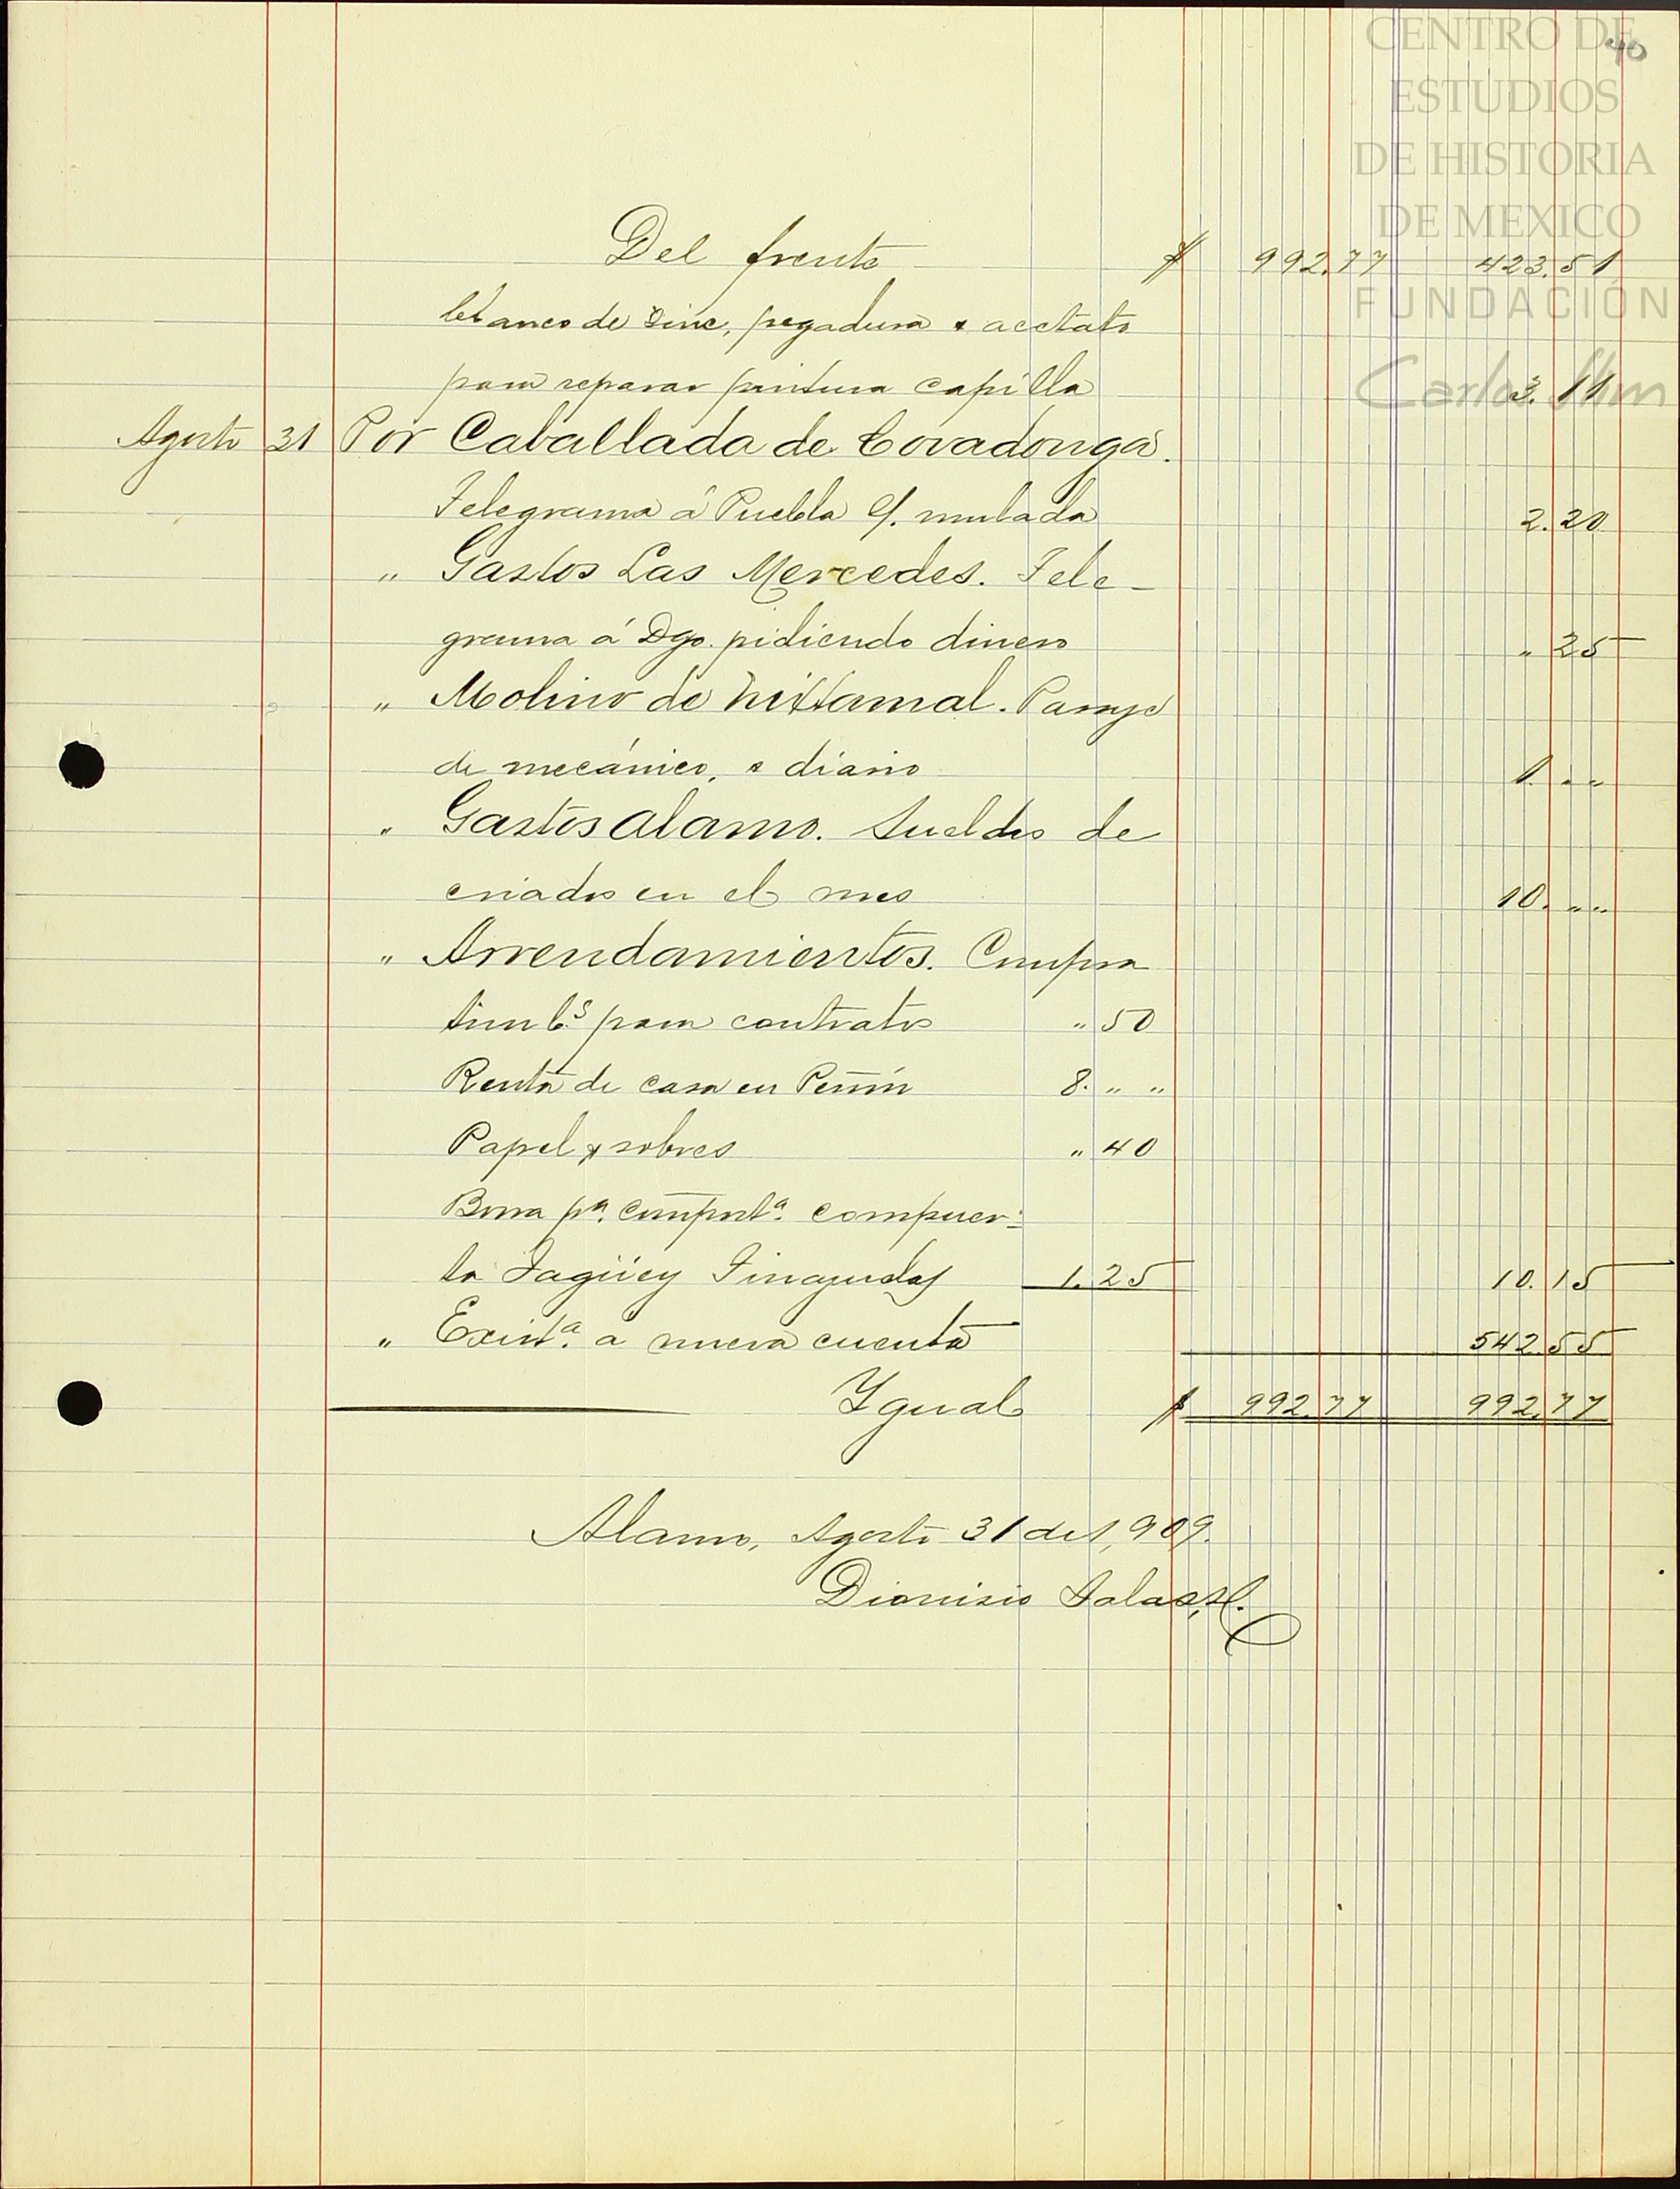 CENTRO DE
ESTUDIOS
DE HISTORIA
DE MEXICO
FUNDACIÓN
Carlos Slim
40
Del frente $ 992.77 423.51
blanco de zinc, pegadura y acetato
para reparar pintura capilla 3.11
Agosto 31 Por Caballada de Covadonga.
Telegrama á Puebla c/. mulada 2.20
" Gastos Las Mercedes. Tele-
grama á Dgo. pidiendo dinero " 25
" Molino de nixtamal. Pasaje
de mecánico, a diario 1. " "
" Gastos Alamo. Sueldos de
criados en el mes 10. " "
" Arrendamientos. Compra
timb.s para contratos " 50
Renta de casa en Peñón 8. " "
Papel y sobres " 40
pa. compuer-
ta Jagüey 1.25 10.15
" Exista. a nueva cuenta 542.55
Ygual $ 992.77 992.77
Alamo, Agosto 31 de 1,909.
Dionisio Salas,